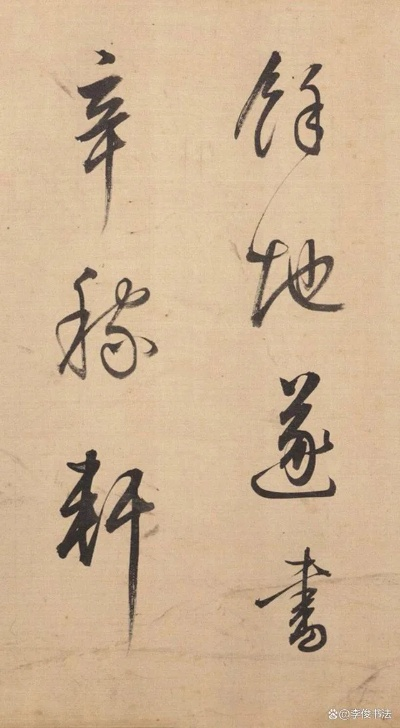 餘地遂書
辛稼軒
李俊书法